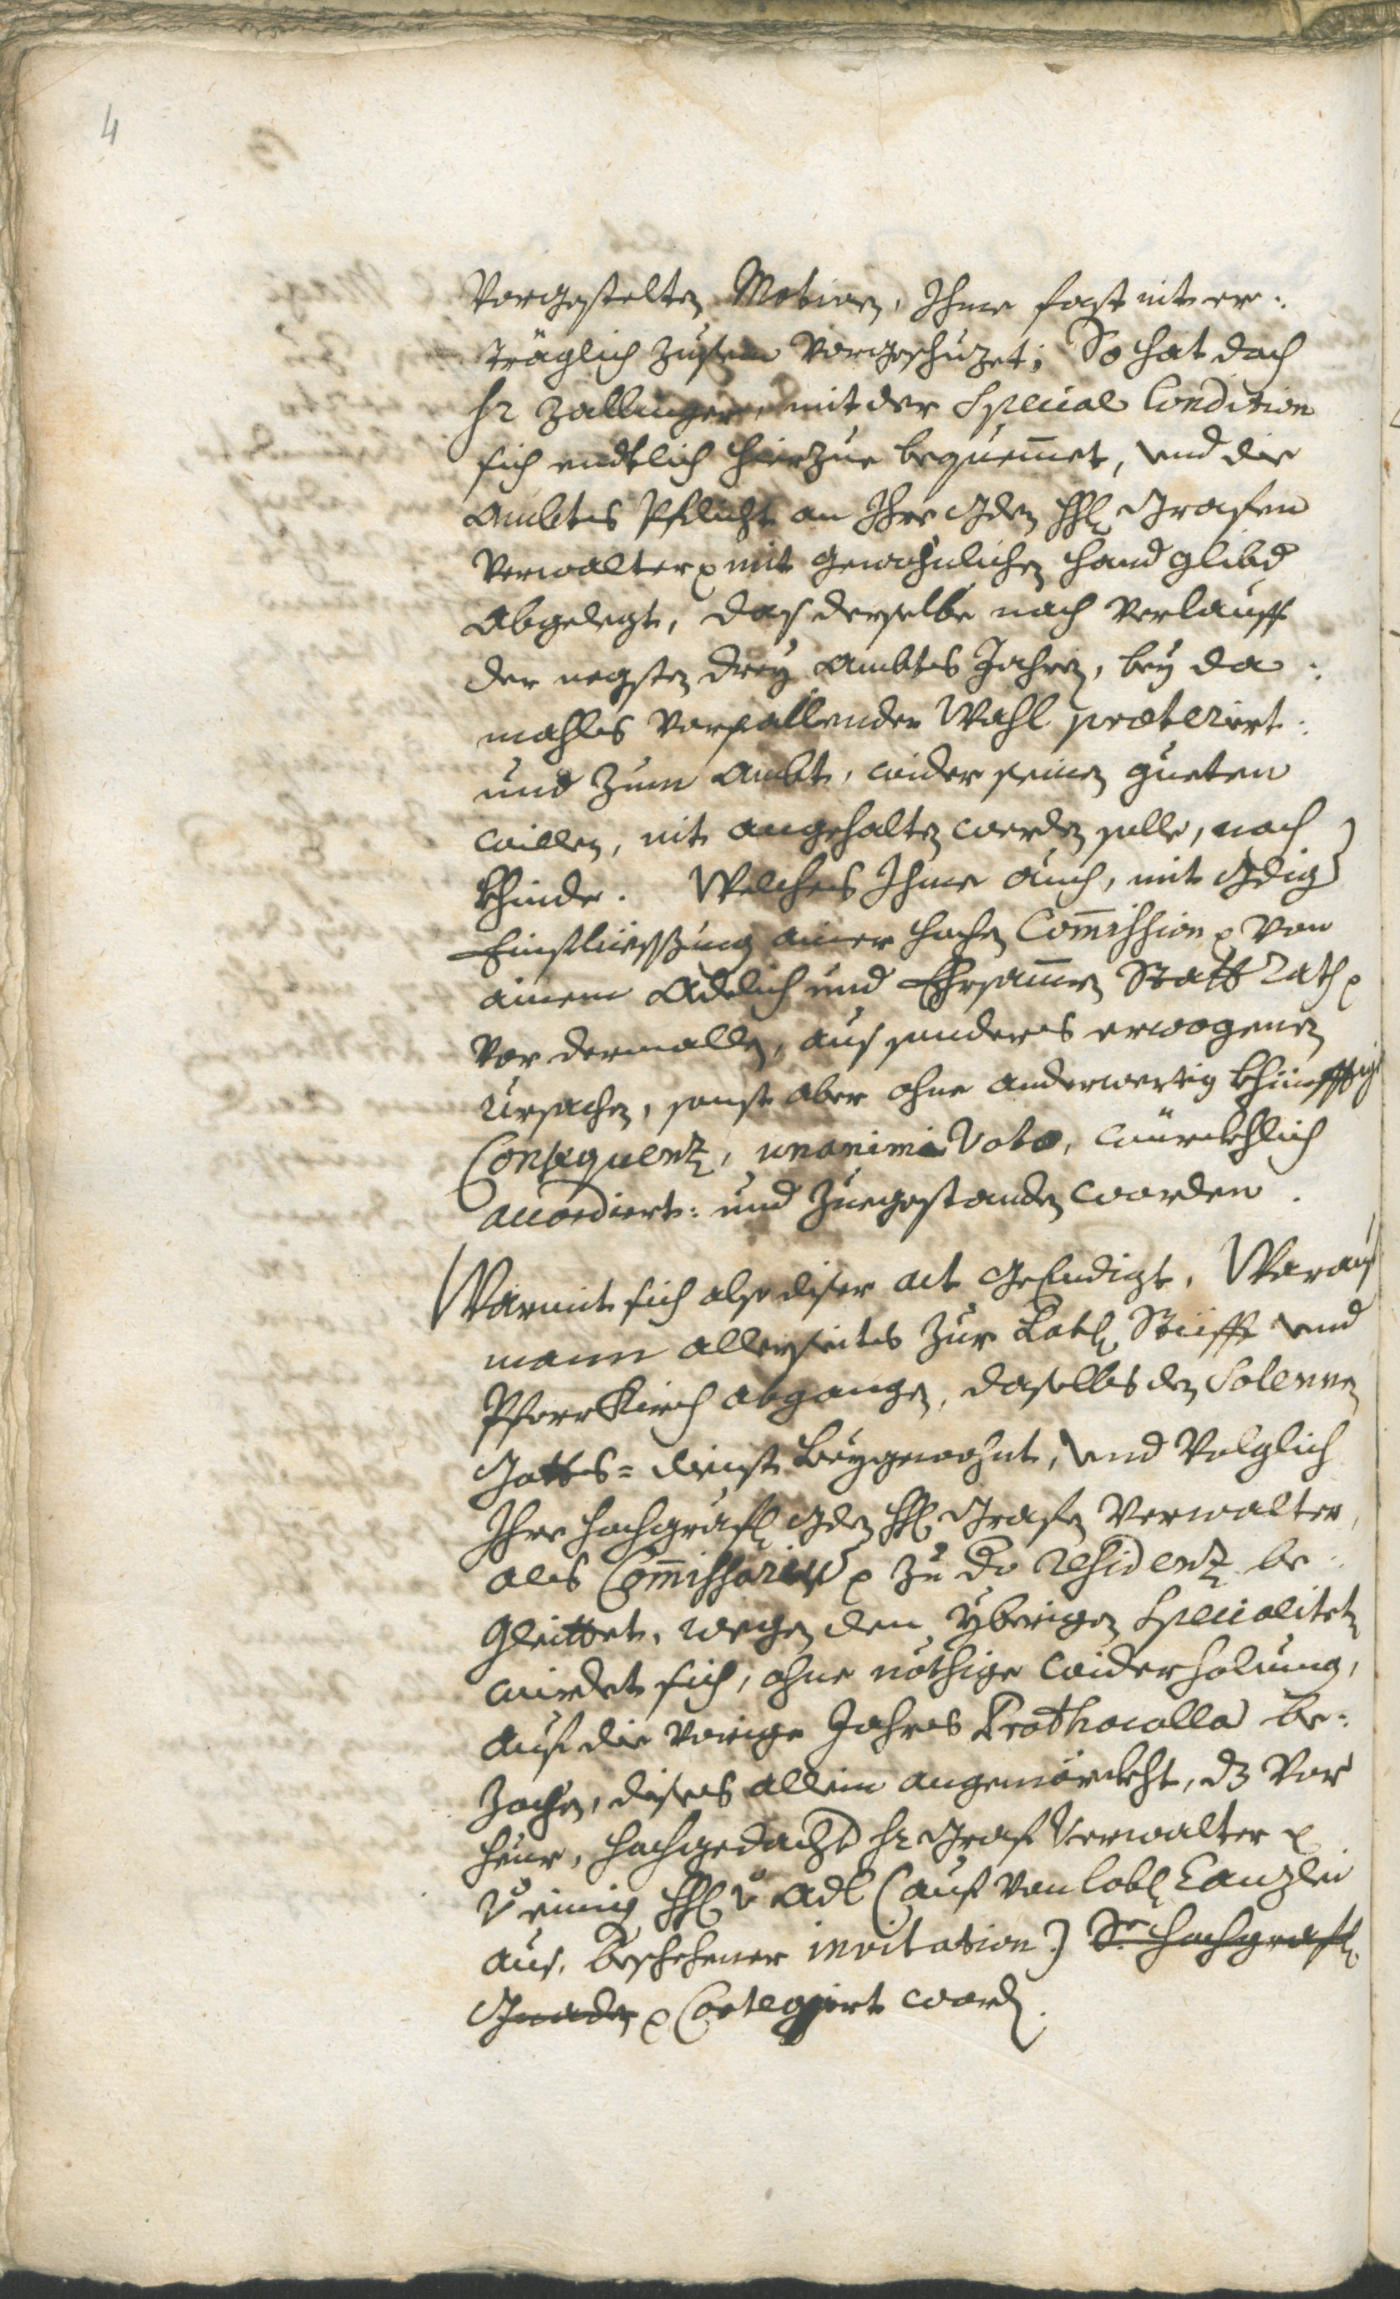 4
vorgestelten Motiven, Ihme fast nit er-
träglich zusein vorgeschuzet; So hat doch
Hr Zallinger, mit der Special Condition
sich endtlich hierzue bequemet, und die
Ambts Pflicht an Ihro Gden HH Grafen
Verwalter mit gewohnlichen handglibd
abgelegt, das derselbe nach verlauff
der negsten drey Ambts Jahren, bey da-
mahls vorfallender Wahl præteriert:
und zum Ambt, wider seinen gueten
willen, nit angehalten werden solle, noch
khinde. Welches Ihme auch, mit Gdig
Einfliessung ainer hochen Commission von
ainem Adelich und Ehrsamen Statt Rath
vor dermallen, aus sonders erwogenen
ursachen, sonst aber ohne anderwertig khünfftige
Consequentz, unanimi Voto, würckhlich
accordiert: und zuegestanden worden.
Warmit sich also diser act geendigt, Warauf
mann allerseits zur Lobl Stüfft und
Pfarrkirch abgangen, daselbs den Solennen
Gotts-dienst beygewohnt, und volglich
Ihro hochgräfl Gden HH Grafen Verwalter,
als Commissarius zu do residentz be-
gleittet, wegen den yberigen Specialiteten
wirdet sich, ohne nöthige widerholung,
auf die vorige Jahrs Prothocolla be-
zochen, dises allein angemörckht, dz vor
heur, hochgedacht Hr Graf Verwalter
v einig HH v Adl (auf von lobl Canzlei
aus, beschehener invitation) Sr hochgräfl
Gnaden Cortegiert word.